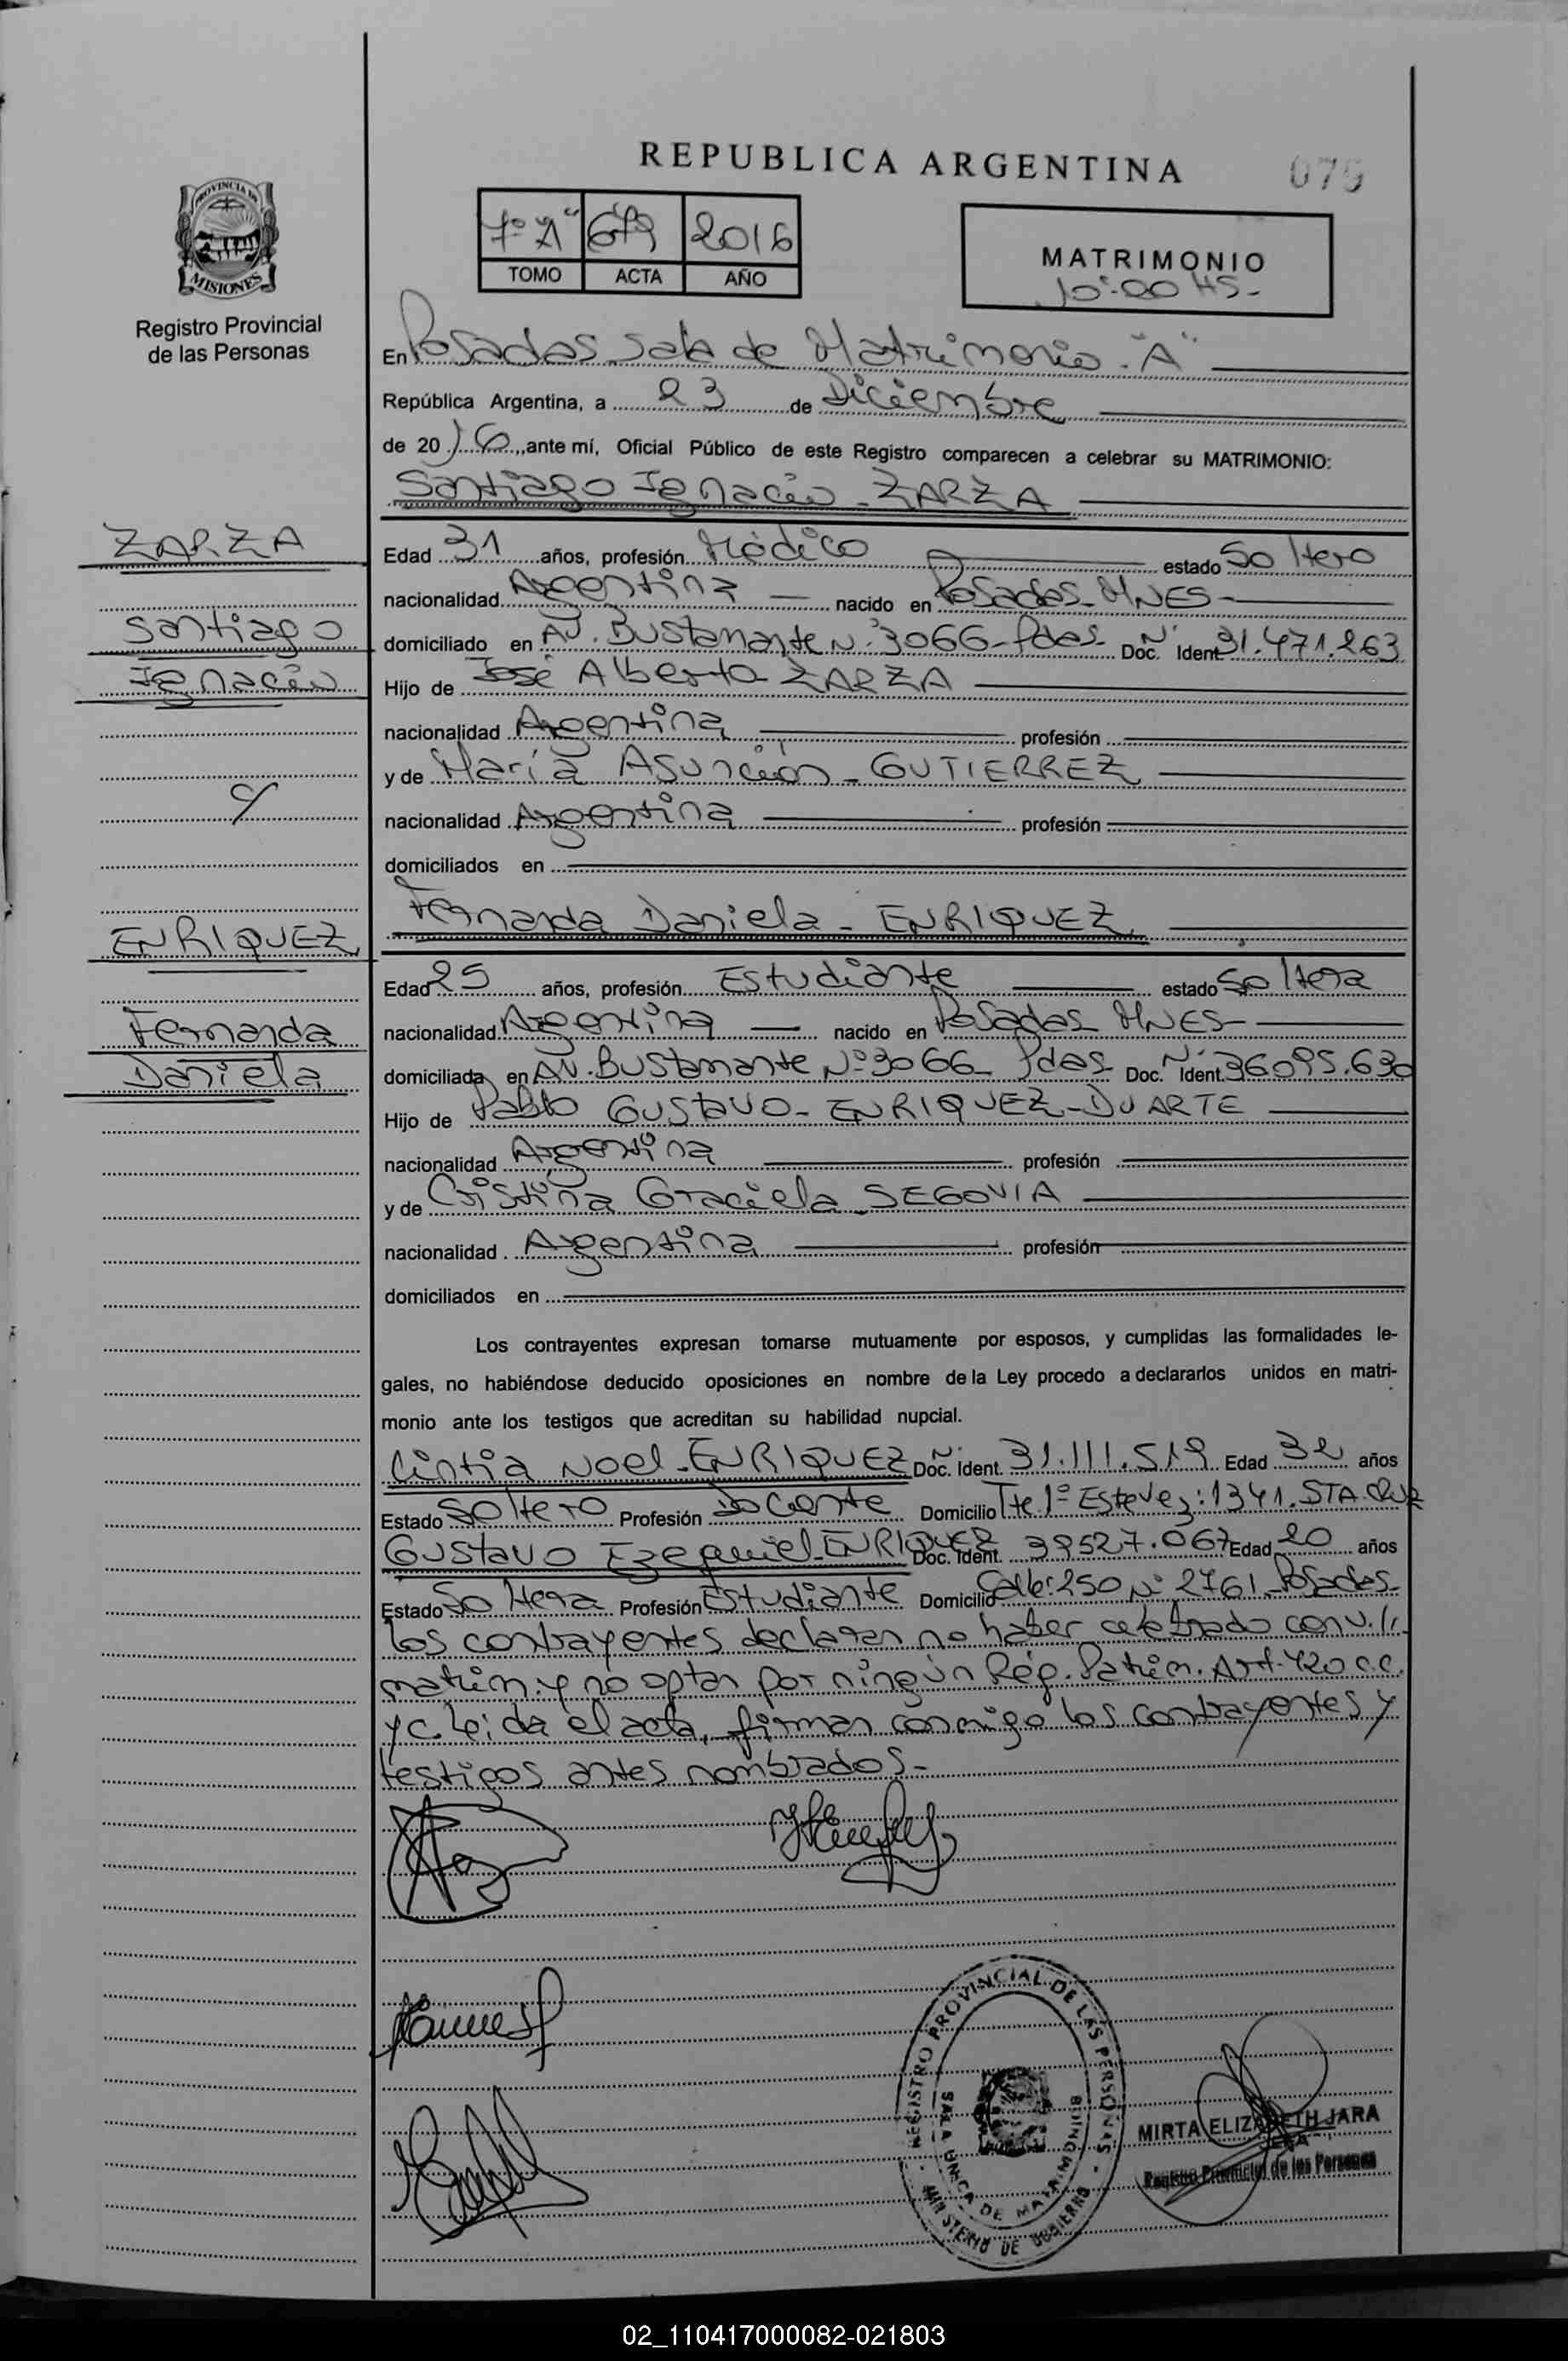 REPUBLICA ARGENTINA
079
PROVINCIA DE
MISIONES
Registro Provincial
de las Personas
7º "A" 679 2016
TOMO ACTA AÑO
MATRIMONIO
10:00 HS.
En Posadas Sala de Matrimonio - "A"
República Argentina, a 23 de Diciembre
de 2016, ante mí, Oficial Público de este Registro comparecen a celebrar su MATRIMONIO:
Santiago Ignacio - ZARZA
ZARZA
Santiago
Ignacio
c/
ENRIQUEZ
Fernanda
Daniela
Edad 31 años, profesión Médico estado Soltero
nacionalidad Argentina nacido en Posadas - MNES -
domiciliado en Av. Bustamante Nº 3066 - Pdas - Doc. Ident. Nº 31.471.263
Hijo de José Alberto - ZARZA
nacionalidad Argentina profesión
y de María Asunción - GUTIERREZ
nacionalidad Argentina profesión
domiciliados en
Fernanda Daniela - ENRIQUEZ
Edad 25 años, profesión Estudiante estado Soltera
nacionalidad Argentina nacido en Posadas MNES -
domiciliada en Av. Bustamante Nº 3066 - Pdas - Doc. Ident. Nº 36095.630
Hijo de Pablo Gustavo - ENRIQUEZ - DUARTE
nacionalidad Argentina profesión
y de Cristina Graciela - SEGOVIA
nacionalidad Argentina profesión
domiciliados en
Los contrayentes expresan tomarse mutuamente por esposos, y cumplidas las formalidades le-
gales, no habiéndose deducido oposiciones en nombre de la Ley procedo a declararlos unidos en matri-
monio ante los testigos que acreditan su habilidad nupcial.
Cintia Noel - ENRIQUEZ Doc. Ident. Nº 31.111.519 Edad 32 años
Estado Soltero Profesión Docente Domicilio Tte 1º Estevez: 1341. STA. Cruz
Gustavo Ezequiel - ENRIQUEZ Doc. Ident. 39527.067 Edad 20 años
Estado Soltera Profesión Estudiante Domicilio Calle: 250 Nº 2761 - Posadas -
Los contrayentes declaran no haber celebrado conv.
matrim. y no optan por ningún Rég. Patrim. Art. 420 C.C.
y C. Leída el acta, firman conmigo los contrayentes y
testigos antes nombrados. -
REGISTRO PROVINCIAL DE LAS PERSONAS
SALA UNICA DE MATRIMONIO
MINISTERIO DE GOBIERNO
MIRTA ELIZABETH JARA
Registro Provincial de las Personas
02_110417000082-021803